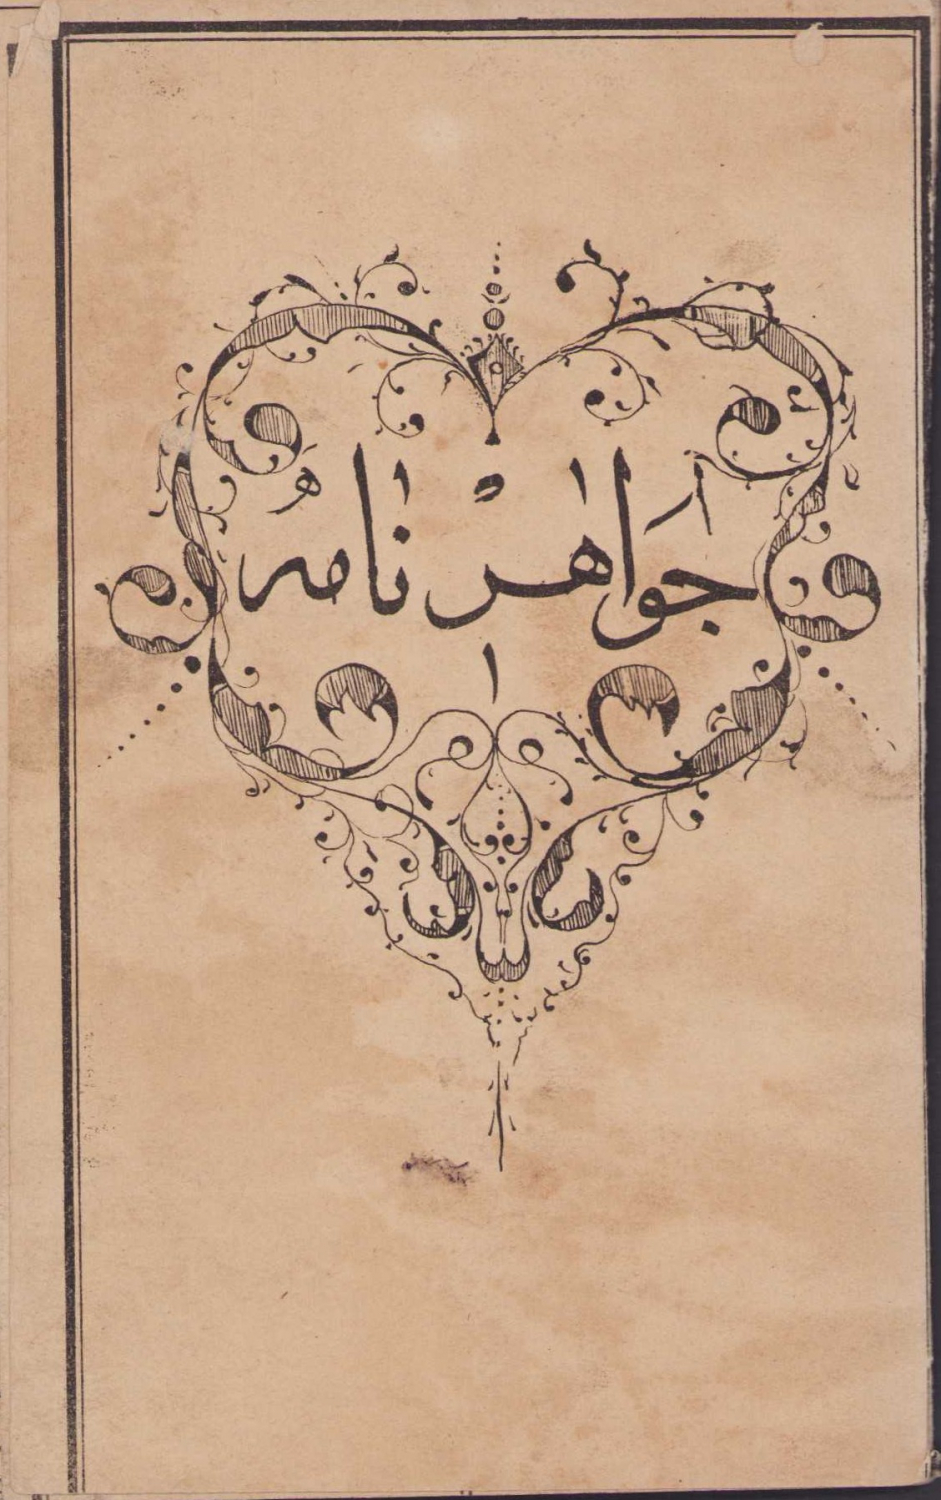 جواهر نامه
١